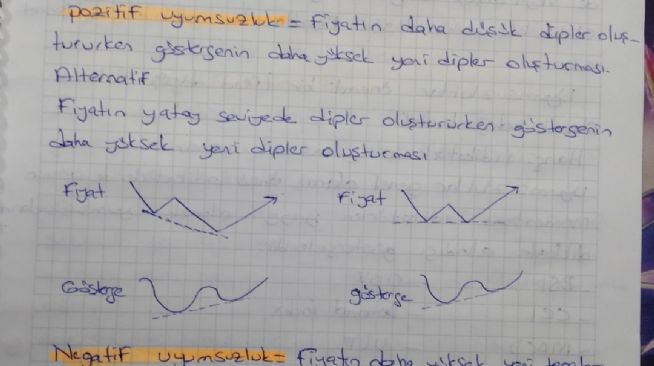 pozitif uyumsuzluk = Fiyatın daha düşük dipler oluş-
tururken göstergenin daha yüksek yeni dipler oluşturması.
Alternatif
Fiyatın yatay seviyede dipler oluştururken göstergenin
daha yüksek yeni dipler oluşturması
Fiyat
Fiyat
Gösterge
gösterge
Negatif uyumsuzluk = Fiyatın daha yüksek yeni